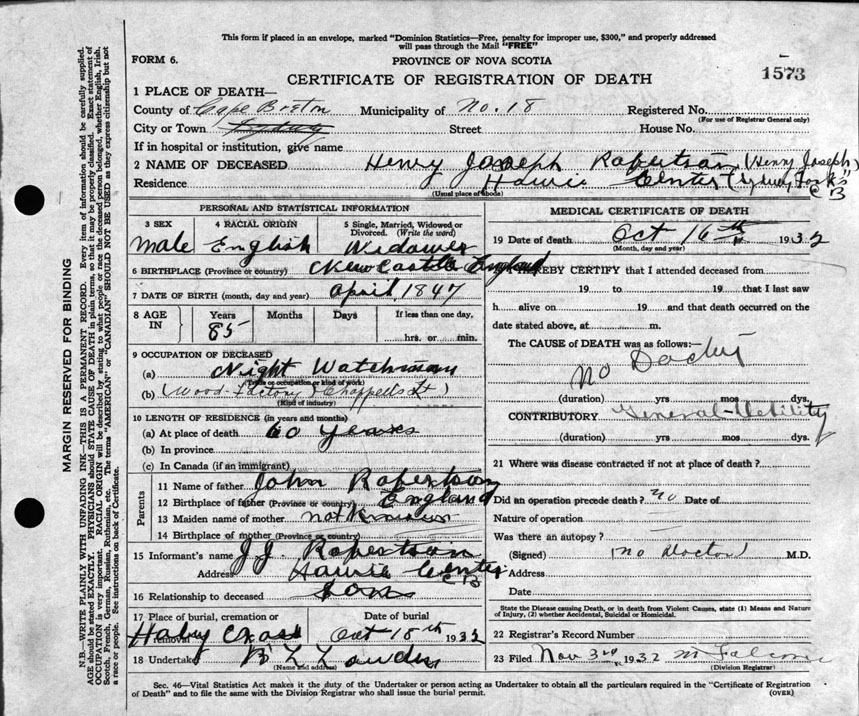 This form if placed in an envelope, marked "Dominion Statistics—Free, penalty for improper use, $300," and properly addressed
will pass through the Mail "FREE"
FORM 6.
PROVINCE OF NOVA SCOTIA
CERTIFICATE OF REGISTRATION OF DEATH
1573
1 PLACE OF DEATH—
County of Cape Breton Municipality of No. 18 Registered No.
(For use of Registrar General only)
City or Town Sydney Street House No.
If in hospital or institution, give name
2 NAME OF DECEASED Henry Joseph Robertson (Henry Joseph)
Residence Howie Center (Sydney Forks" C B
(Usual place of abode)
PERSONAL AND STATISTICAL INFORMATION
3 SEX 4 RACIAL ORIGIN 5 Single, Married, Widowed or Divorced. (Write the word)
male English Widower
6 BIRTHPLACE (Province or country) New Castle England
7 DATE OF BIRTH (month, day and year) April 1847
8 AGE IN Years Months Days If less than one day.
85 hrs. or min.
9 OCCUPATION OF DECEASED
(a) Night Watchman
(Trade or occupation or kind of work)
(b) (Wood-factory) Chappells
(Kind of industry)
10 LENGTH OF RESIDENCE (in years and months)
(a) At place of death 60 years
(b) In province
(c) In Canada (if an immigrant)
Parents
11 Name of father John Robertson
12 Birthplace of father (Province or country) England
13 Maiden name of mother not known
14 Birthplace of mother (Province or country)
15 Informant's name J. J. Robertson
Address Howie Center C B
16 Relationship to deceased son
17 Place of burial, cremation or removal Date of burial
Holy Cross Oct 18th 1932
18 Undertaker B L
(Name and address)
MEDICAL CERTIFICATE OF DEATH
19 Date of death Oct 16th 1932
(Month, day and year)
I HEREBY CERTIFY that I attended deceased from
19 to 19 that I last saw
h alive on 19 and that death occurred on
date stated above, at m.
The CAUSE OF DEATH was as follows:—
No Doctor
(duration) yrs mos dys.
CONTRIBUTORY General Debility
(duration) yrs. mos dys.
21 Where was disease contracted if not at place of death?
Did an operation precede death? no Date of
Nature of operation
Was there an autopsy?
(Signed) (no Doctor) M.D.
Address
Date
State the Disease causing Death, or in death from Violent Causes, state (1) Means and Nature
of Injury, (2) whether Accidental, Suicidal or Homicidal.
22 Registrar's Record Number
23 Filed Nov 3rd 1932
(Division Registrar)
Sec. 46—Vital Statistics Act makes it the duty of the Undertaker or person acting as Undertaker to obtain all the particulars required in the "Certificate of Registration
of Death" and to file the same with the Division Registrar who shall issue the burial permit.
(OVER)
MARGIN RESERVED FOR BINDING
N.B.—WRITE PLAINLY WITH UNFADING INK—THIS IS A PERMANENT RECORD. Every item of information should be carefully supplied.
AGE should be stated EXACTLY. PHYSICIANS should STATE CAUSE OF DEATH in plain terms, so that it may be properly classified. Exact statement of
OCCUPATION is very important. RACIAL ORIGIN will be described by stating to what people or race the deceased person belonged, whether English, Irish,
Scotch, French, German, Russian, Ruthenian, etc. The terms "AMERICAN" or "CANADIAN" SHOULD NOT BE USED as they express citizenship but not
a race or people. See instructions on back of Certificate.